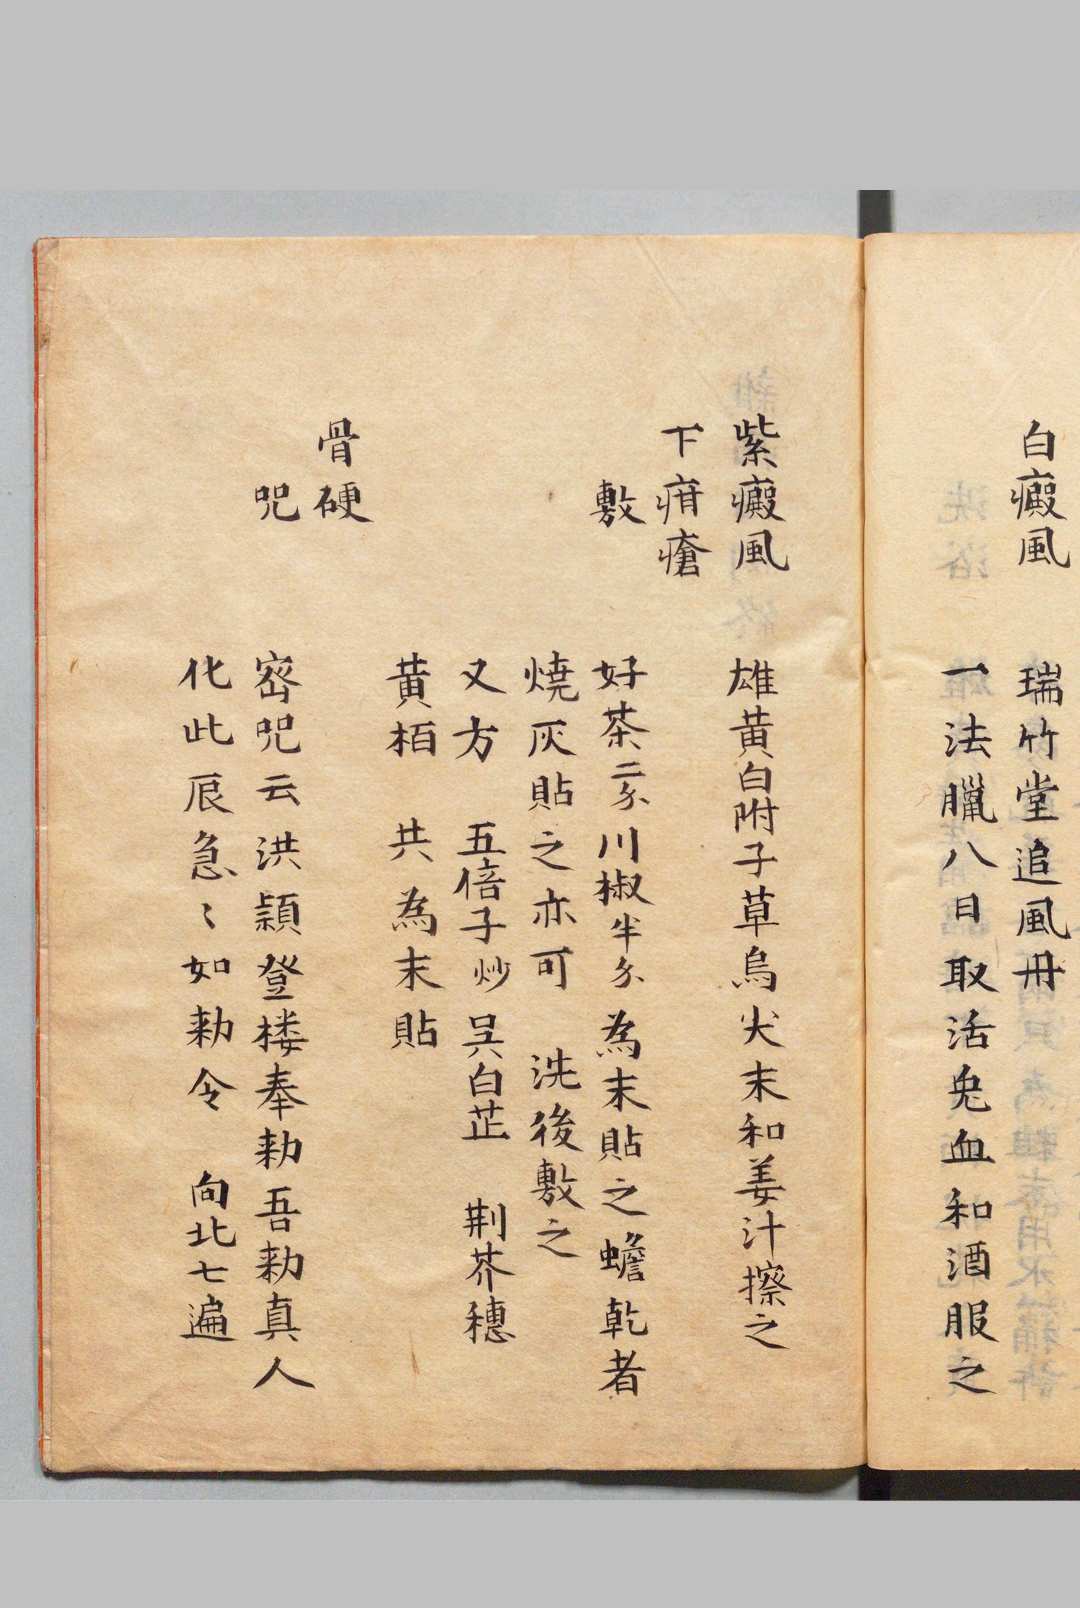 白癜風　瑞竹堂追風丹
一法臘八日取活兔血和酒服之
紫癜風　雄黃白附子草烏尖末和姜汁擦之
下疳瘡
敷　好茶二分川椒半分為末貼之蟾乾者
燒灰貼之亦可　洗後敷之
又方　五倍子炒吳白芷　荆芥穗
黃栢　共為末貼
骨硬
呪　密呪云洪穎登楼奉勅吾勅真人
化此辰急〻如勅令　向北七遍